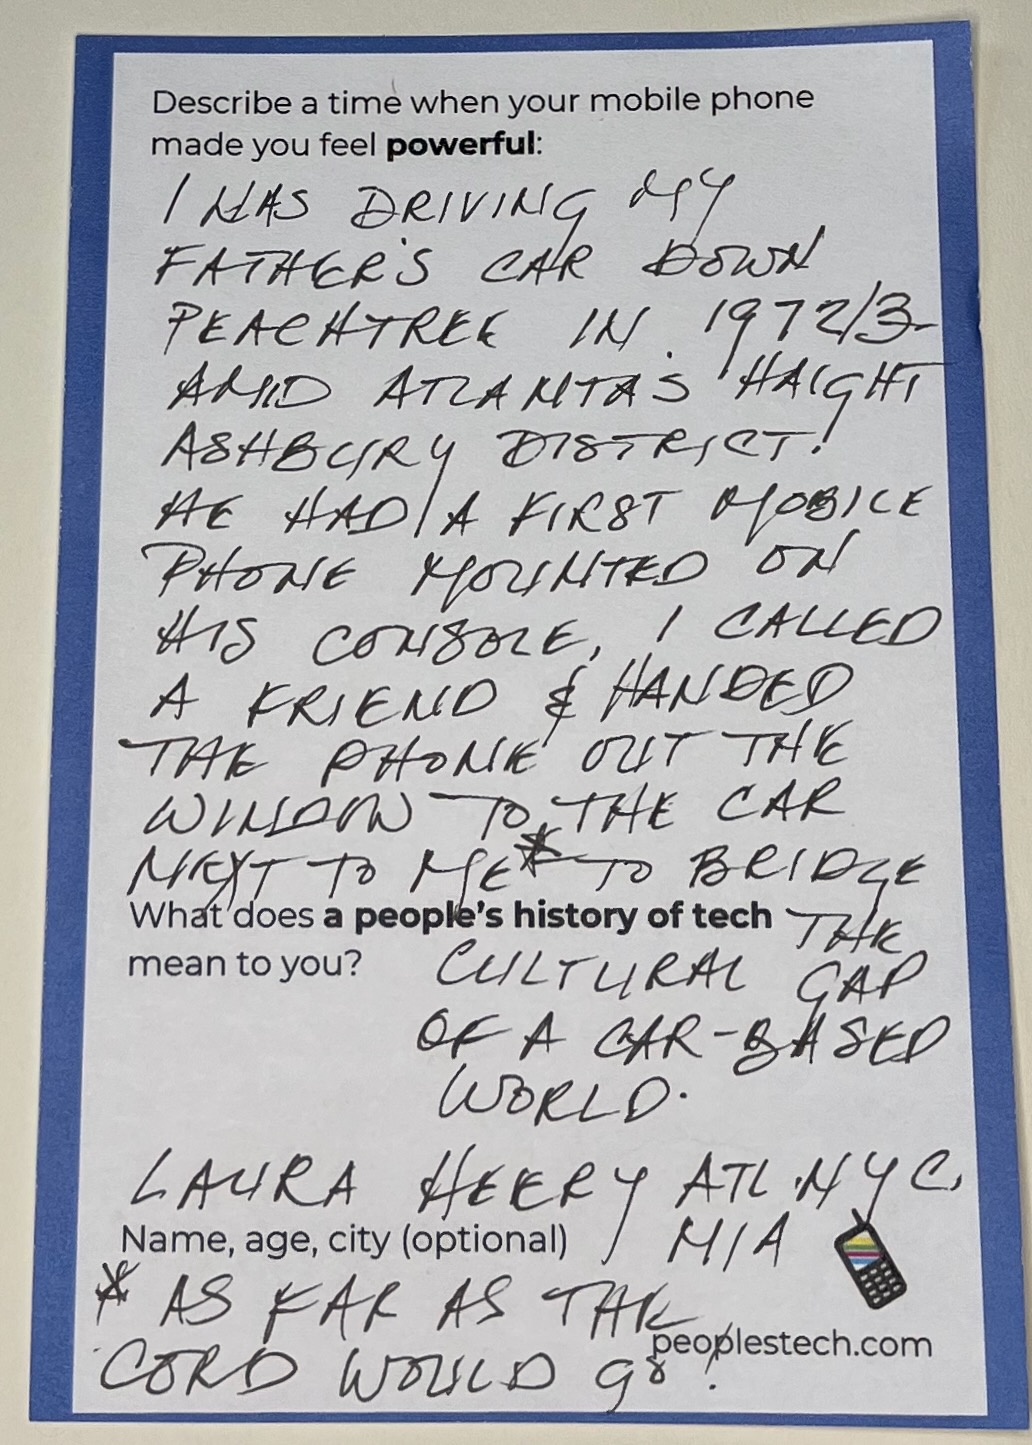 Describe a time when your mobile phone
made you feel powerful:
I WAS DRIVING MY
FATHER'S CAR DOWN
PEACHTREE IN 1972/3-
AMID ATLANTA'S HAIGHT
ASHBURY DISTRICT!
HE HAD A FIRST MOBILE
PHONE MOUNTED ON
HIS CONSOLE, I CALLED
A FRIEND & HANDED
THE PHONE OUT THE
WINDOW TO THE CAR
NEXT TO ME* TO BRIDGE
THE
What does a people's history of tech
mean to you?
CULTURAL GAP
OF A CAR-BASED
WORLD.
LAURA HEERY ATL.NYC.
MIA
Name, age, city (optional)
* AS FAR AS THE
CORD WOULD GO!
peoplestech.com